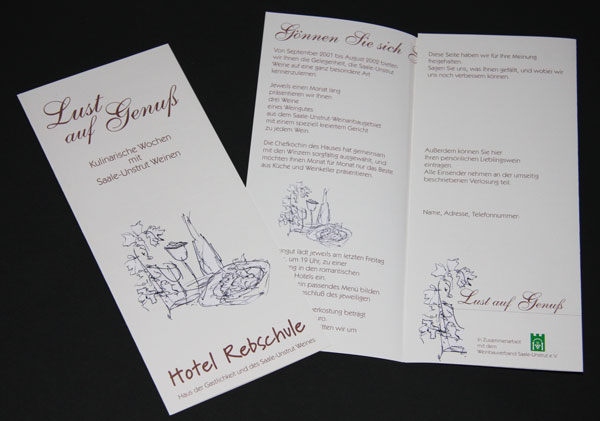 Lust
auf Genuß
Kulinarische Wochen
mit
Saale-Unstrut Weinen
Hotel Rebschule
Haus der Gastlichkeit und des Saale-Unstrut Weines
Gönnen Sie sich
Von September 2001 bis August 2002 bieten
wir Ihnen die Gelegenheit, die Saale-Unstrut
Weine auf eine ganz besondere Art
kennenzulernen.
Jeweils einen Monat lang
präsentieren wir Ihnen
drei Weine
eines Weingutes
aus dem Saale-Unstrut-Weinanbaugebiet
mit einem speziell kreierten Gericht
zu jedem Wein.
Die Chefköchin des Hauses hat gemeinsam
mit den Winzern sorgfältig ausgewählt, und
möchten Ihnen Monat für Monat nur das Beste
aus Küche und Weinkeller präsentieren.
gut lädt jeweils am letzten Freitag
um 19 Uhr, zu einer
in den romantischen
Hotels ein.
ein passendes Menü bilden
schluß des jeweiligen
verkostung beträgt
ro.
ten wir um
Diese Seite haben wir für Ihre Meinung
freigehalten.
Sagen Sie uns, was Ihnen gefällt, und wobei wir
uns noch verbessern können.
Außerdem können Sie hier
Ihren persönlichen Lieblingswein
eintragen.
Alle Einsender nehmen an der umseitig
beschriebenen Verlosung teil.
Name, Adresse, Telefonnummer
Lust auf Genuß
In Zusammenarbeit
mit dem
Weinbauverband Saale-Unstrut e.V.